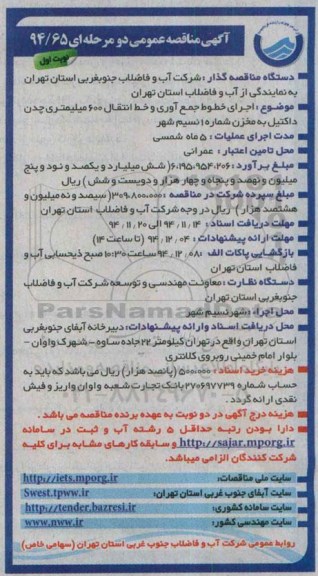 آگهی مناقصه عمومی دو مرحله ای ۹۴/۶۵
نوبت اول
دستگاه مناقصه گذار : شرکت آب و فاضلاب جنوبغربی استان تهران
به نمایندگی از آب و فاضلاب استان تهران
موضوع : اجرای خطوط جمع آوری و خط انتقال ۶۰۰ میلیمتری چدن
داکتیل به مخزن شماره ۱ نسیم شهر
مدت اجرای عملیات : ۵ ماه شمسی
محل تامین اعتبار : عمرانی
مبلغ برآورد : ۶،۱۹۵،۹۵۴،۲۰۶( شش میلیارد و یکصد و نود و پنج
میلیون و نهصد و پنجاه و چهار هزار و دویست و شش ) ریال
مبلغ سپرده شرکت در مناقصه : ۳۰۹،۸۰۰،۰۰۰( سیصد و نه میلیون و
هشتصد هزار ) ریال در وجه شرکت آب و فاضلاب استان تهران
مهلت دریافت اسناد : ۹۴/۱۱/۱۴ الی ۹۴/۱۱/۲۰
مهلت ارائه پیشنهادات : ۹۴/۱۲/۰۴ (تا ساعت ۱۴)
بازگشایی پاکات الف : ۹۴/۱۲/۰۸ ساعت ۱۰:۳۰ صبح ذیحسابی آب و
فاضلاب استان تهران
دستگاه نظارت : معاونت مهندسی و توسعه شرکت آب و فاضلاب
جنوبغربی استان تهران
محل اجراء : شهر نسیم شهر
محل دریافت اسناد و ارائه پیشنهادات: دبیرخانه آبفای جنوبغربی
استان تهران واقع در تهران کیلومتر ۲۲ جاده ساوه - شهرک واوان -
بلوار امام خمینی روبروی کلانتری
هزینه خرید اسناد : ۵۰۰،۰۰۰ (پانصد هزار) ریال می باشد که باید به
حساب شماره ۲۷۰۶۹۷۷۳۹ بانک تجارت شعبه واوان واریز و فیش
نقدی ارائه گردد .
هزینه درج آگهی در دو نوبت به عهده برنده مناقصه می باشد .
دارا بودن رتبه حداقل ۵ رشته آب و ثبت در سامانه
http://sajar.mporg.ir و سابقه کارهای مشابه برای کلیه
شرکت کنندگان الزامی میباشد.
سایت ملی مناقصات: http://iets.mporg.ir
سایت آبفای جنوب غربی استان تهران: Swest.tpww.ir
سایت سامانه کشوری: http://tender.bazresi.ir
سایت مهندسی کشور: www.nww.ir
روابط عمومی شرکت آب و فاضلاب جنوب غربی استان تهران (سهامی خاص)